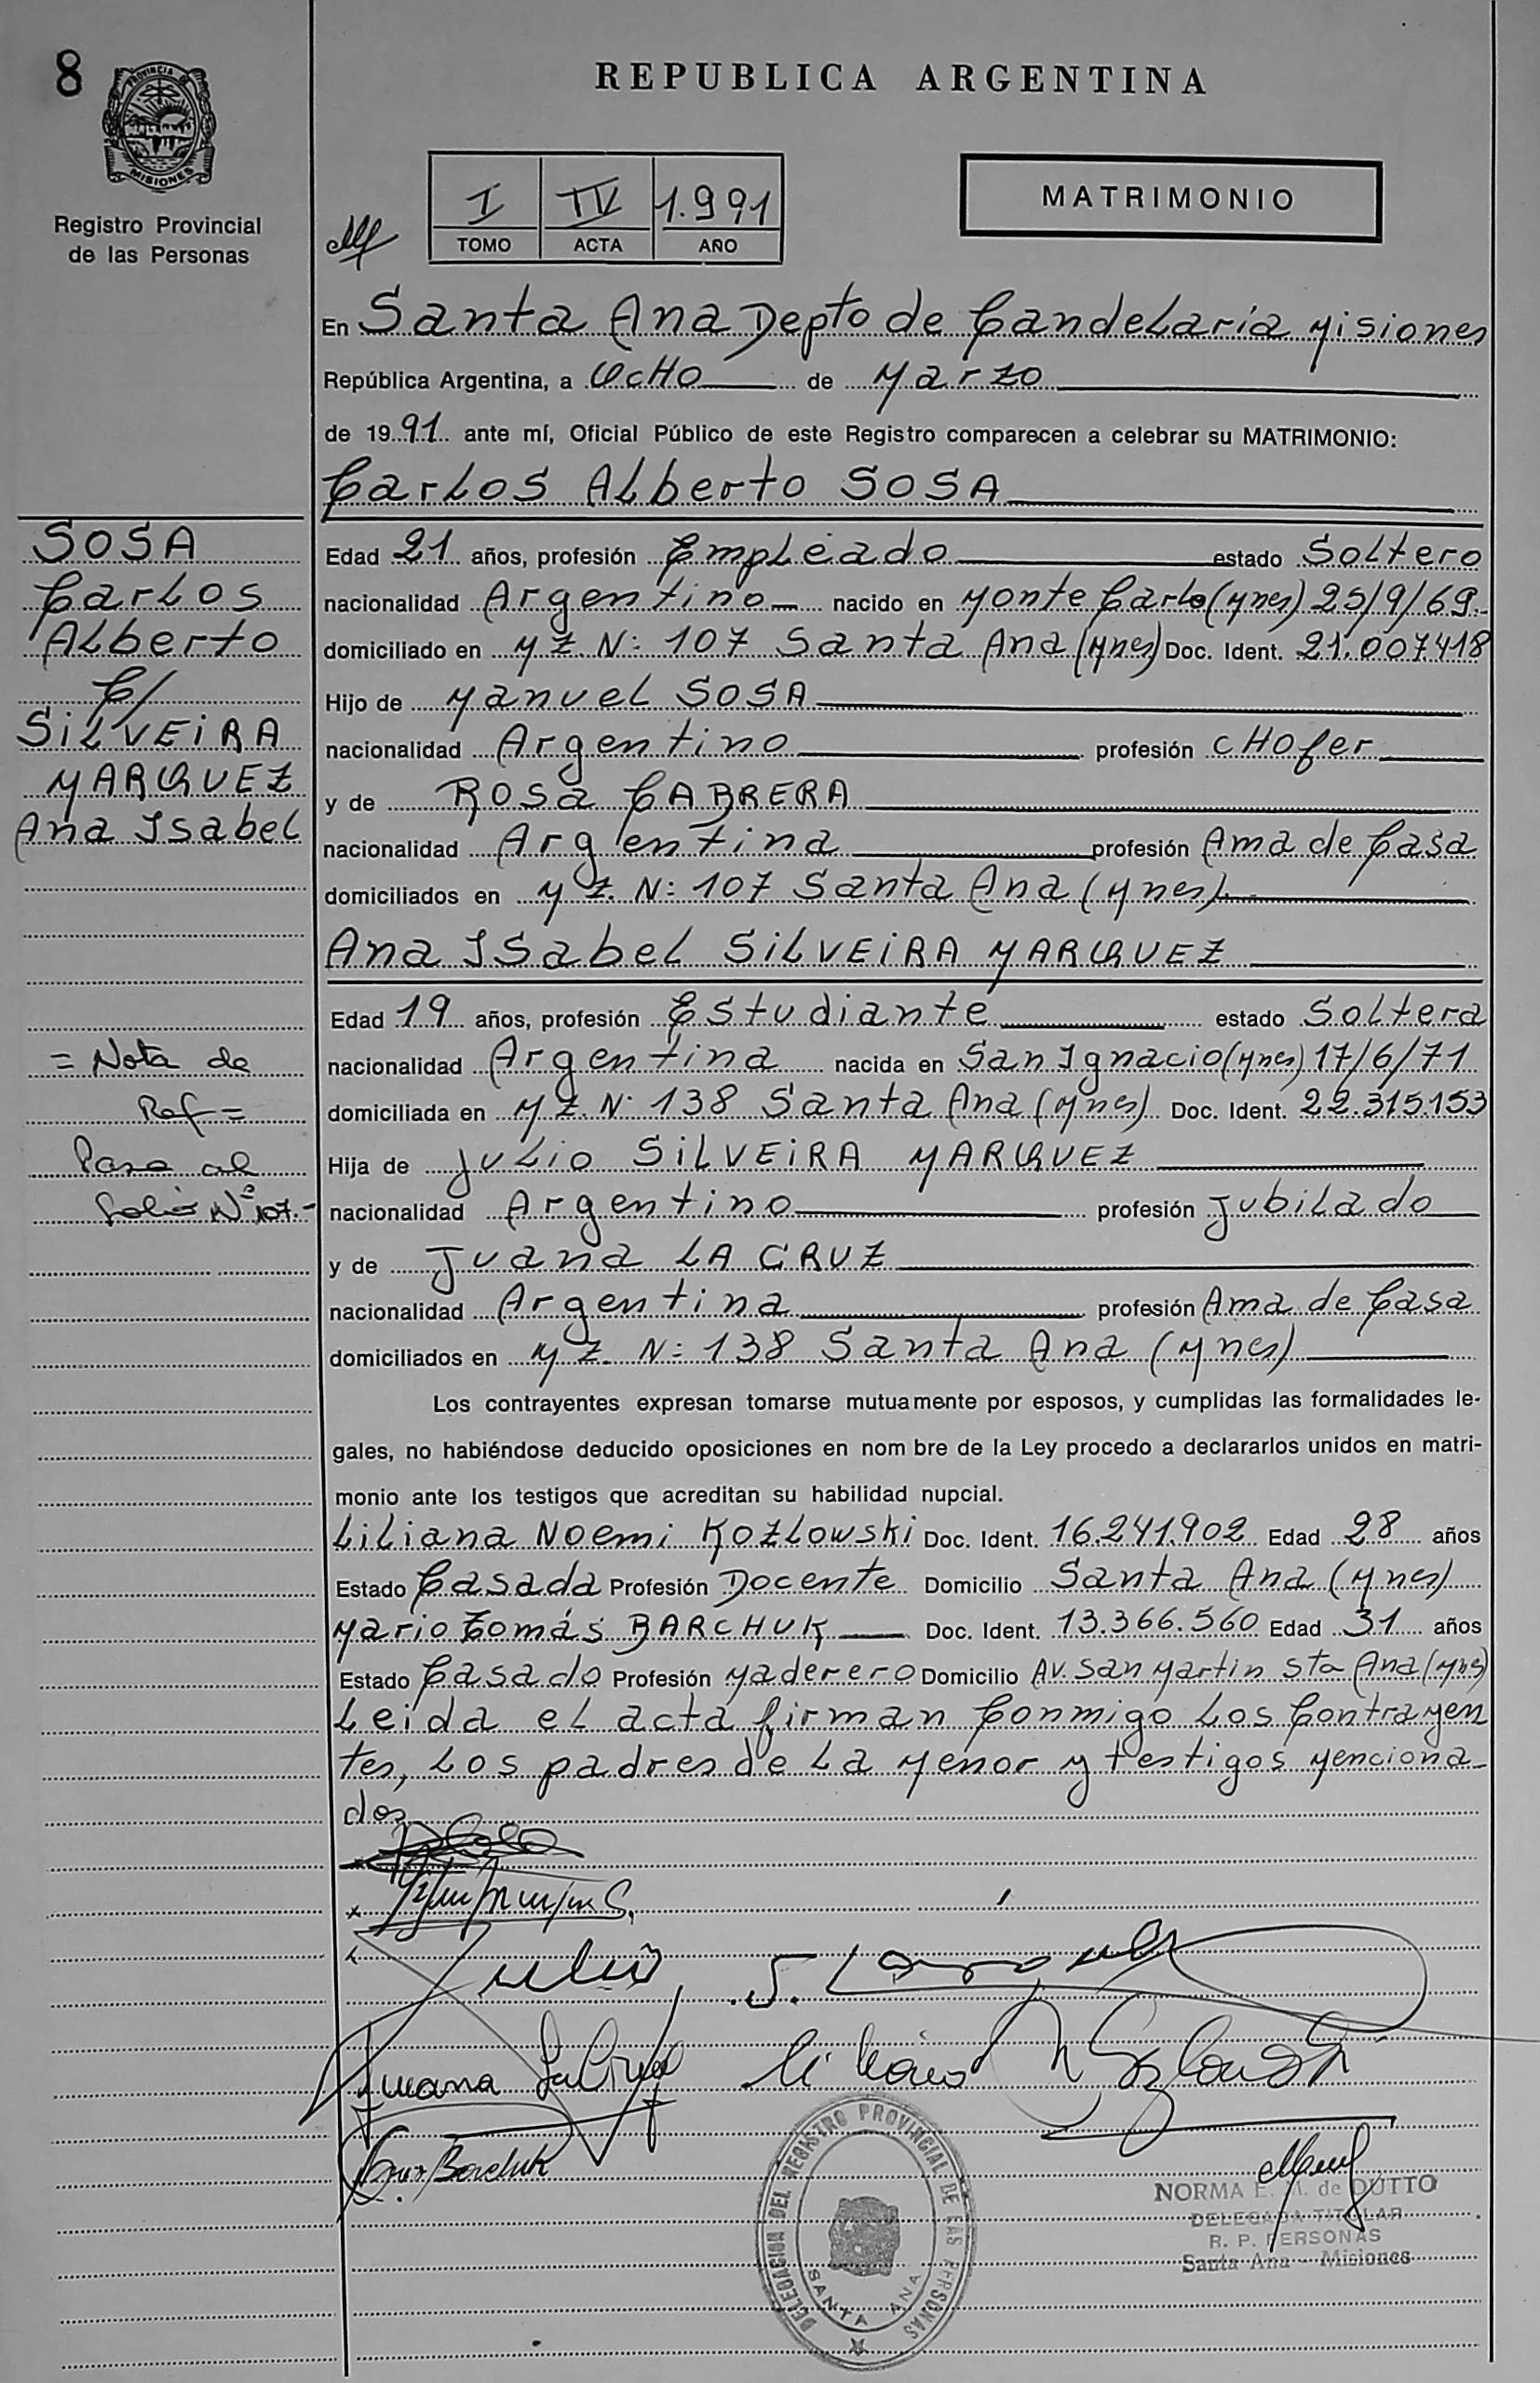 8
PROVINCIA DE
MISIONES
Registro Provincial
de las Personas
REPUBLICA ARGENTINA
I IV 1.991
TOMO ACTA AÑO
MATRIMONIO
En Santa Ana Depto de Candelaria Misiones
República Argentina, a OcHo de Marzo
de 1991 ante mí, Oficial Público de este Registro comparecen a celebrar su MATRIMONIO:
Carlos Alberto SOSA
Edad 21 años, profesión Empleado estado Soltero
nacionalidad Argentino nacido en Monte Carlo (Mnes) 25/9/69.-
domiciliado en Mz. N: 107 Santa Ana (Mnes) Doc. Ident. 21.007.418
Hijo de Manuel SOSA
nacionalidad Argentino profesión cHofer
y de Rosa CABRERA
nacionalidad Argentina profesión Ama de Casa
domiciliados en Mz. N: 107 Santa Ana (Mnes)
Ana Isabel SiLVEiRA MARQUEZ
Edad 19 años, profesión Estudiante estado Soltera
nacionalidad Argentina nacida en San Ignacio (Mnes) 17/6/71
domiciliada en Mz. N: 138 Santa Ana (Mnes) Doc. Ident. 22.315.153
Hija de Julio SiLVEiRA MARQUEZ
nacionalidad Argentino profesión Jubilado
y de Juana LA CRUZ
nacionalidad Argentina profesión Ama de Casa
domiciliados en Mz. N: 138 Santa Ana (Mnes)
Los contrayentes expresan tomarse mutuamente por esposos, y cumplidas las formalidades le-
gales, no habiéndose deducido oposiciones en nom bre de la Ley procedo a declararlos unidos en matri-
monio ante los testigos que acreditan su habilidad nupcial.
Liliana Noemi KOZLOWSKi Doc. Ident. 16.241.902 Edad 28 años
Estado Casada Profesión Docente Domicilio Santa Ana (Mnes)
Mario Tomás BARCHUK Doc. Ident. 13.366.560 Edad 31 años
Estado Casado Profesión Maderero Domicilio Av. San Martin Sta Ana (Mnes)
Leida el acta firman Conmigo Los Contrayen
tes, Los padres de La Menor y testigos Menciona-
dos
SOSA
Carlos
Alberto
C/
SiLVEiRA
MARQUEZ
Ana Isabel
= Nota de
Ref =
Pasa al
folio Nº 107.-
Julio S. Marquez
Juana La Cruz Liliana N Kozlowski
Barchuk
DELEGACION DEL REGISTRO PROVINCIAL DE LAS PERSONAS
SANTA ANA
NORMA E. M. de DUTTO
DELEGADA TITULAR
R. P. PERSONAS
Santa Ana - Misiones